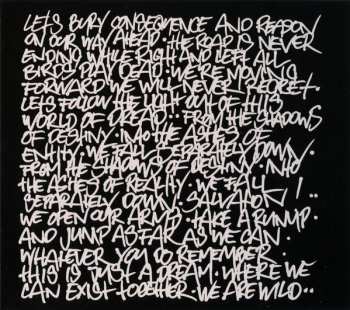 LETS BURY CONSEQUENCE AND REASON
ON OUR WAY AHEAD. THE ROAD IS NEVER
ENDING WHILE RIGHT AND LEFT ALL
BIRDS PLAY DEAD. WE'RE MOVING
FORWARD WE WILL NEVER REGRET.
LETS FOLLOW THE LIGHT OUT OF THIS
WORLD OF DREAD.. FROM THE SHADOWS
OF DESTINY. INTO THE ASHES OF
ENTITY. WE FALL SEPARATELY DOWN.
FROM THE SHADOWS OF DESTINY. INTO
THE ASHES OF REALITY. WE FALL
SEPARATELY DOWN. SALVATION!..
WE OPEN OUR ARMS. TAKE A RUNUP.
AND JUMP AS FAR AS WE CAN.
WHATEVER YOU DO REMEMBER.
THIS IS JUST A DREAM. WHERE WE
CAN EXIST TOGETHER. WE ARE WILD..